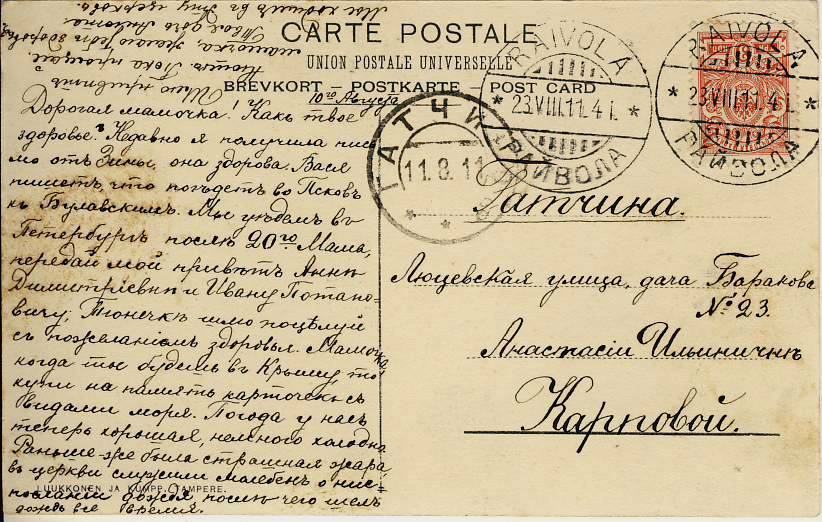 CARTE POSTALE
UNION POSTALE UNIVERSELLE
BREVKORT POSTKARTE POST CARD
10го Августа
Дорогая мамочка! Какъ твое
здоровье? Недавно я получила пись
мо отъ Зины, она здорова. Вася
пишетъ, что поѣдетъ во Псковъ
къ Булавскимъ. Мы уѣдемъ въ
Петербургъ послѣ 20го Мама,
передай мой привѣтъ Аннѣ
Димитріевнѣ и Ивану Потапо-
вичу, Тюнечкѣ поцѣлуй
съ пожеланіемъ здоровья. Мамочка,
когда ты будешь въ Крыму то
купи на память карточекъ съ
видами моря. Погода у насъ
теперь хорошая, немного холодно.
Раньше-же была страшная жара,
въ церкви служили молебенъ о нис-
посланіи дождя, послѣ чего шелъ
дождь все время.
Шлю привѣтъ
Пока прощай
мамочка, желаю тебѣ здоровья
Твоя дочь
Мы ходимъ въ эту церковь.
RAIVOLA
23.VIII.11. 4 i.
РАЙВОЛА
RAIVOLA
23.VIII.11. 4 i.
РАЙВОЛА
ГАТЧИНА
11.8.11
Гатчина.
Люцевская улица, дача Баракова
№ 23.
Анастасіи Ильиничнѣ
Карповой.
LUUKKONEN JA KUMPP. TAMPERE.